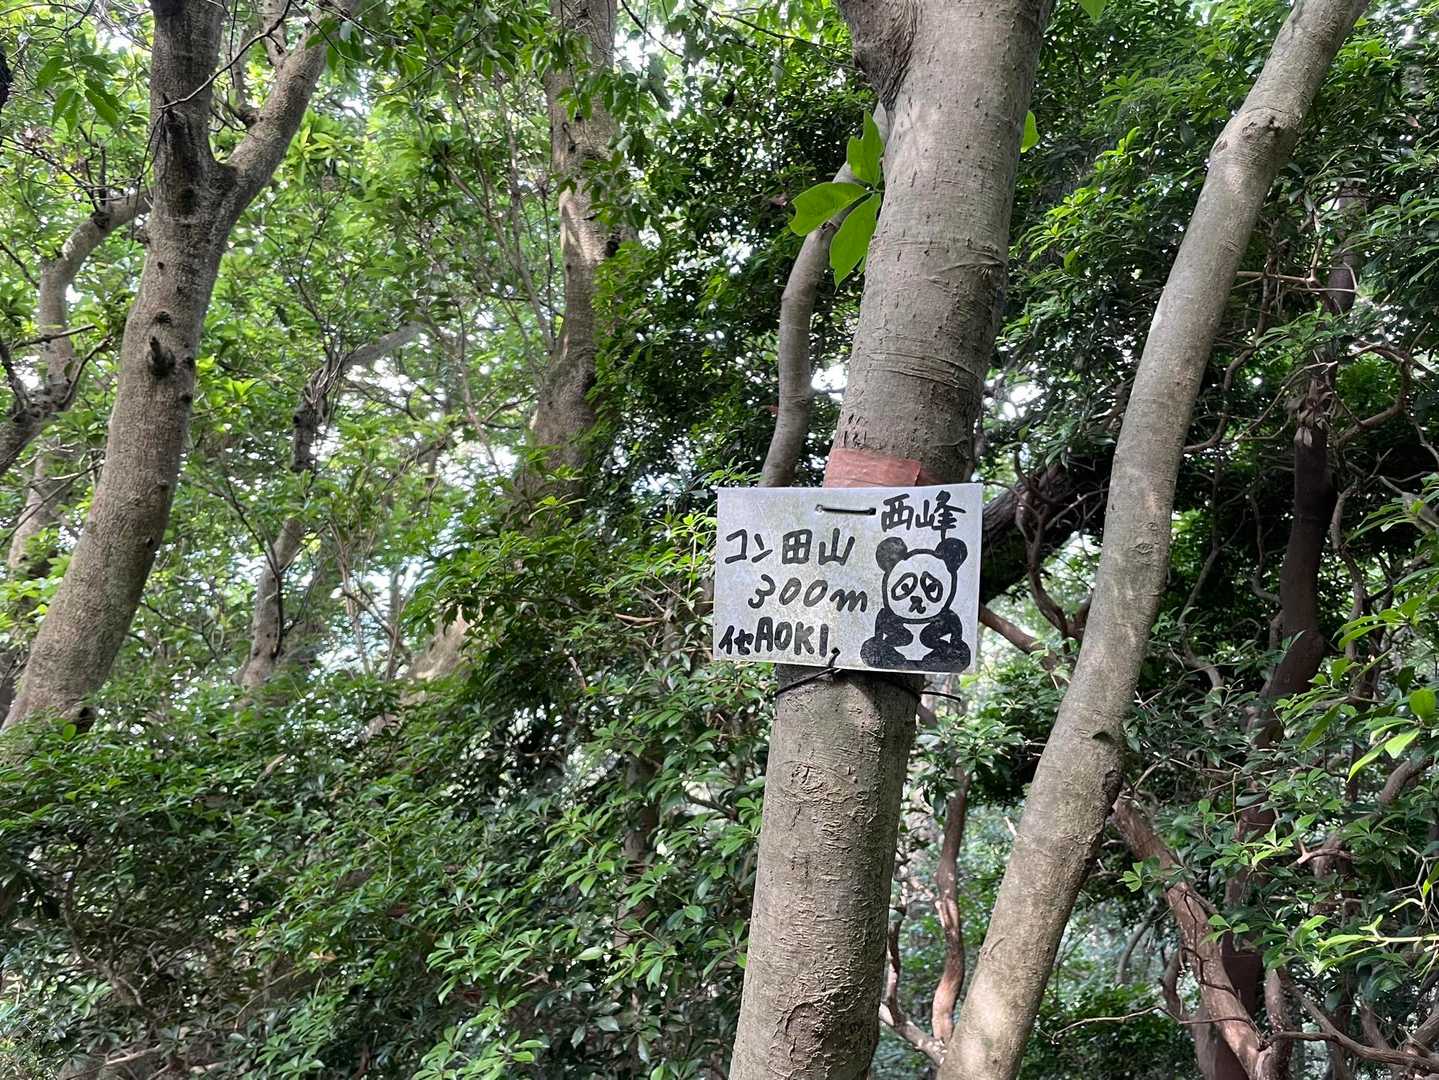 西峰
コン田山
300m
AOKI